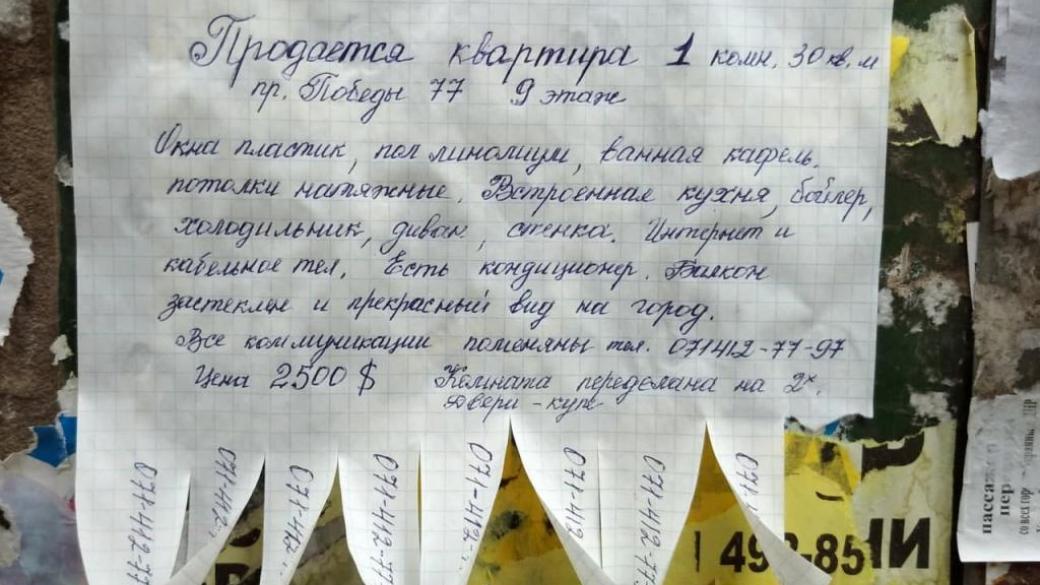 Продается квартира 1 комн. 30 кв. м
пр. Победы 77 9 этаж
Окна пластик, пол линолиум, ванная кафель.
потолки натяжные. Встроенная кухня, бойлер,
холодильник, диван, стенка. Интернет и
кабельное тел. Есть кондиционер. Балкон
застеклен и прекрасный вид на город.
Все коммуникации поменяны тел. 071412-77-97
Цена 2500 $ Комната переделана на 2х.
Двери - купе
071-412-77
071-412-
071-412
071-412-77
071-412-
071-412
071-412-77
071-
49 -85
НИ
пассаж
пер